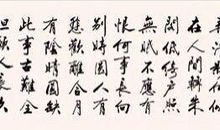 在人間轉朱
閣低綺戶照
無眠不應有
恨何事長向
別時圓人有
悲歡離合月
有陰晴圓缺
此事古難全
但願人長久